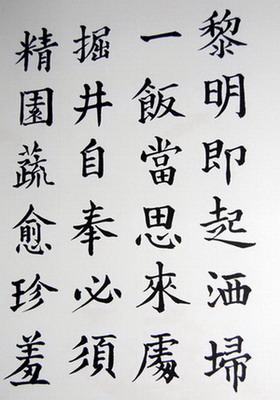 黎明即起洒掃
一飯當思來處
掘井自奉必須
精園蔬愈珍羞